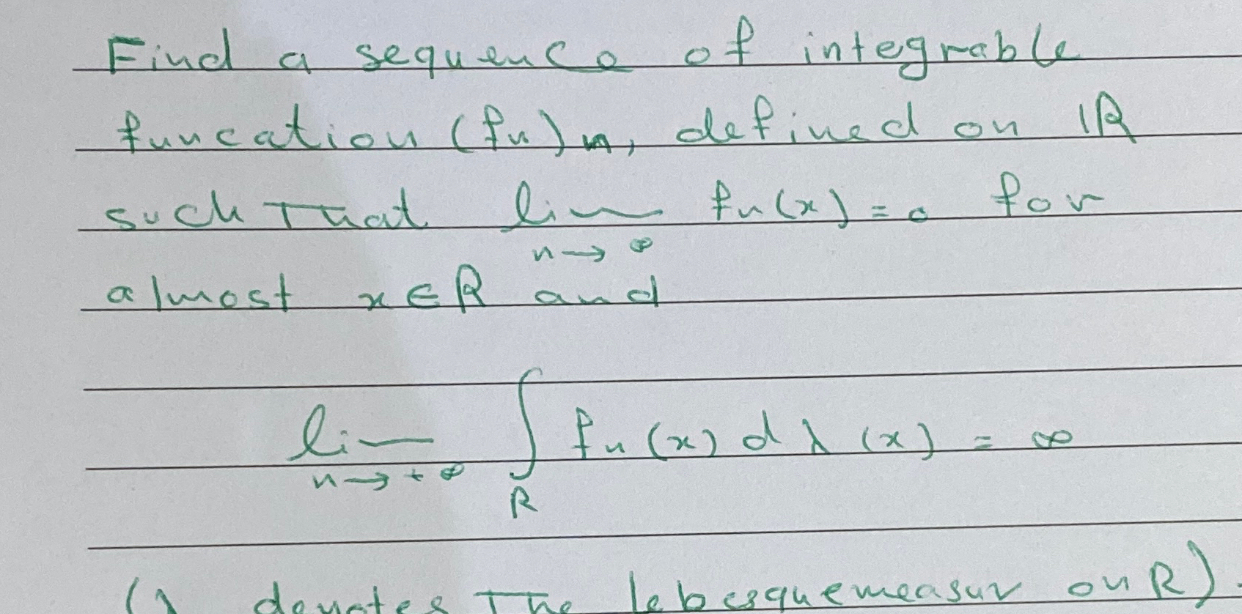 Find a sequence of integrable
funcation (fn)n, defined on IR
such That lim fn(x)=0 for
n→∞
almost x∈R and
lim ∫ fn(x) dλ(x) = ∞
n→+∞ R
(λ denotes The lebesquemeasur on R).